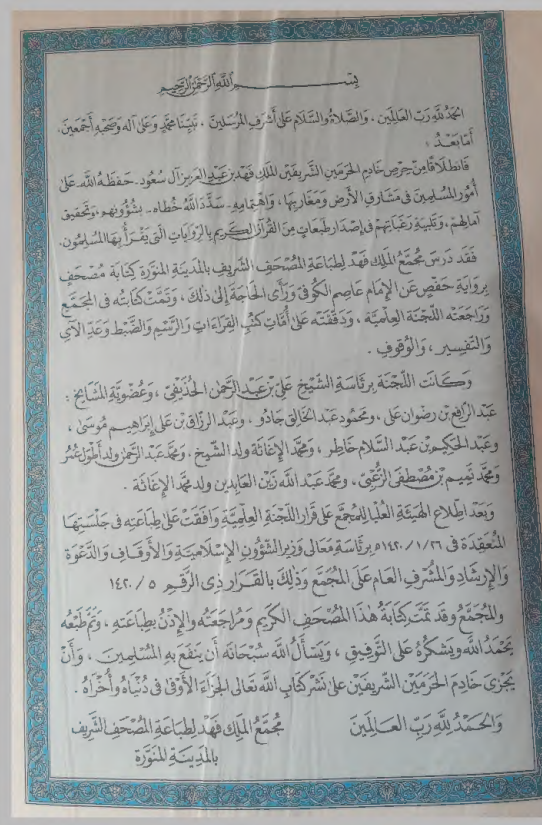 بِسْــــــمِ ٱللَّهِ ٱلرَّحْمَٰنِ ٱلرَّحِيمِ
الحَمْدُ لِلَّهِ رَبِّ العَالَمِين ، وَالصَّلَاةُ والسَّلَامُ عَلىٰ أَشْرَفِ المُرْسَلِينَ ، نَبِيِّنَا مُحَمَّدٍ وَعَلىٰ آلِهِ وَصَحْبِهِ أَجْمَعِينَ .
أمّا بَعْدُ :
فَانطِلَاقًا مِنْ حِرْصِ خَادِمِ الحَرَمَيْنِ الشَّرِيفَيْنِ المَلِكِ فَهْد بن عَبْدِ العَزِيزِ آل سُعُود ـ حَفِظَهُ اللَّهُ ـ عَلىٰ
أُمُورِ المُسْلِمِينَ فِي مَشَارِقِ الأَرْضِ وَمَغَارِبِهَا ، وَاهْتِمَامِهِ ـ سَدَّدَ اللَّهُ خُطَاه ـ بِشُؤُونِهِم ، وَتَحْقِيقِ
آمَالِهِمْ ، وَتَلْبِيَةِ رَغَبَاتِهِمْ فِي إِصْدَارِ طَبَعَاتٍ مِنَ القُرْآنِ الكَرِيمِ بِالرِّوَايَاتِ الَّتِي يَقْرَأُ بِهَا المُسْلِمُون .
فَقَدْ دَرَسَ مُجَمَّعُ المَلِك فَهْد لِطِبَاعَةِ المُصْحَفِ الشَّرِيفِ بِالمَدِينَةِ المُنَوَّرَةِ كِتَابَةَ مُصْحَفٍ
بِرِوَايَةِ حَفْصٍ عَنِ الإِمَامِ عَاصِمٍ الكُوفِيّ وَرَأَى الحَاجَةَ إِلَىٰ ذٰلِكَ ، وَتَمَّتْ كِتَابَتُهُ فِي المُجَمَّع
وَرَاجَعَتْهُ اللَّجْنَةُ العِلْمِيَّة ، وَدَقَّقَتْهُ عَلىٰ أُمَّاتِ كُتُبِ القِرَاءَاتِ وَالرَّسْمِ وَالضَّبْطِ وَعَدِّ الآيِ
وَالتَّفْسِيرِ ، وَالوُقُوفِ .
وَكَانَت اللَّجْنَةُ بِرِئَاسَةِ الشَّيْخِ عَلِيّ بن عَبْدِ الرَّحْمٰن الحُذَيْفِيّ ، وَعُضْوِيَّةِ المَشَايِخِ :
عَبْد الرَّافِع بن رِضْوَان عَلِي ، ومَحْمُود عَبْد الخَالِق جَادُو ، وعَبْد الرزَّاق بن عَلِي إِبْرَاهِيم مُوسَىٰ ،
وعَبْد الحَكِيم بن عَبْد السَّلَام خَاطِر ، ومُحَمَّد الإغَاثَة ولد الشَّيْخ ، ومُحَمَّد عَبْد الرَّحْمٰن ولد أَطْوَل عُمُر
وَمُحَمَّد تَمِيم بن مُصْطَفَى الزُّعْبِيّ ، ومُحَمَّد عَبْد اللَّه زَيْن العَابِدِين ولد مُحَمَّد الإغَاثَة .
وَبَعْدَ اطِّلَاعِ الهَيْئَةِ العُلْيَا لِلْمُجَمَّعِ عَلىٰ قَرَارِ اللَّجْنَةِ العِلْمِيَّةِ وَافَقَتْ عَلىٰ طِبَاعَتِهِ فِي جَلْسَتِهَا
المُنْعَقِدَةِ فِي ١٤٢٠/١/٢٦هـ بِرِئَاسَةِ مَعَالِي وَزِيرِ الشُّؤُونِ الإِسْلَامِيَّةِ وَالأَوْقَافِ وَالدَّعْوَةِ
وَالإِرْشَادِ وَالمُشْرِفِ العَامِّ عَلَى المُجَمَّعِ وَذٰلِكَ بِالقَرَارِ ذِي الرَّقْمِ ٥ / ١٤٢٠
والمُجَمَّعُ وَقَد تَمَّتْ كِتَابَةُ هٰذَا المُصْحَفِ الكَرِيمِ وَمُرَاجَعَتُهُ وَالإِذْنُ بِطِبَاعَتِهِ ، وَتَمَّ طَبْعُهُ
يَحْمَدُ اللَّهَ وَيَشْكُرُهُ عَلَى التَّوْفِيقِ ، وَيَسْأَلُ اللَّهَ سُبْحَانَهُ أَن يَنْفَعَ بِهِ المُسْلِمِينَ ، وَأَنْ
يَجْزِيَ خَادِمَ الحَرَمَيْنِ الشَّرِيفَيْنِ عَلىٰ نَشْرِ كِتَابِ اللَّهِ تَعَالَى الجَزَاءَ الأَوْفَىٰ فِي دُنْيَاهُ وَأُخْرَاهُ .
وَالحَمْدُ لِلَّهِ رَبِّ العَالَمِينَ
مُجَمَّعُ المَلِك فَهْد لِطِبَاعَةِ المُصْحَفِ الشَّرِيف
بِالمَدِينَةِ المُنَوَّرَةِ